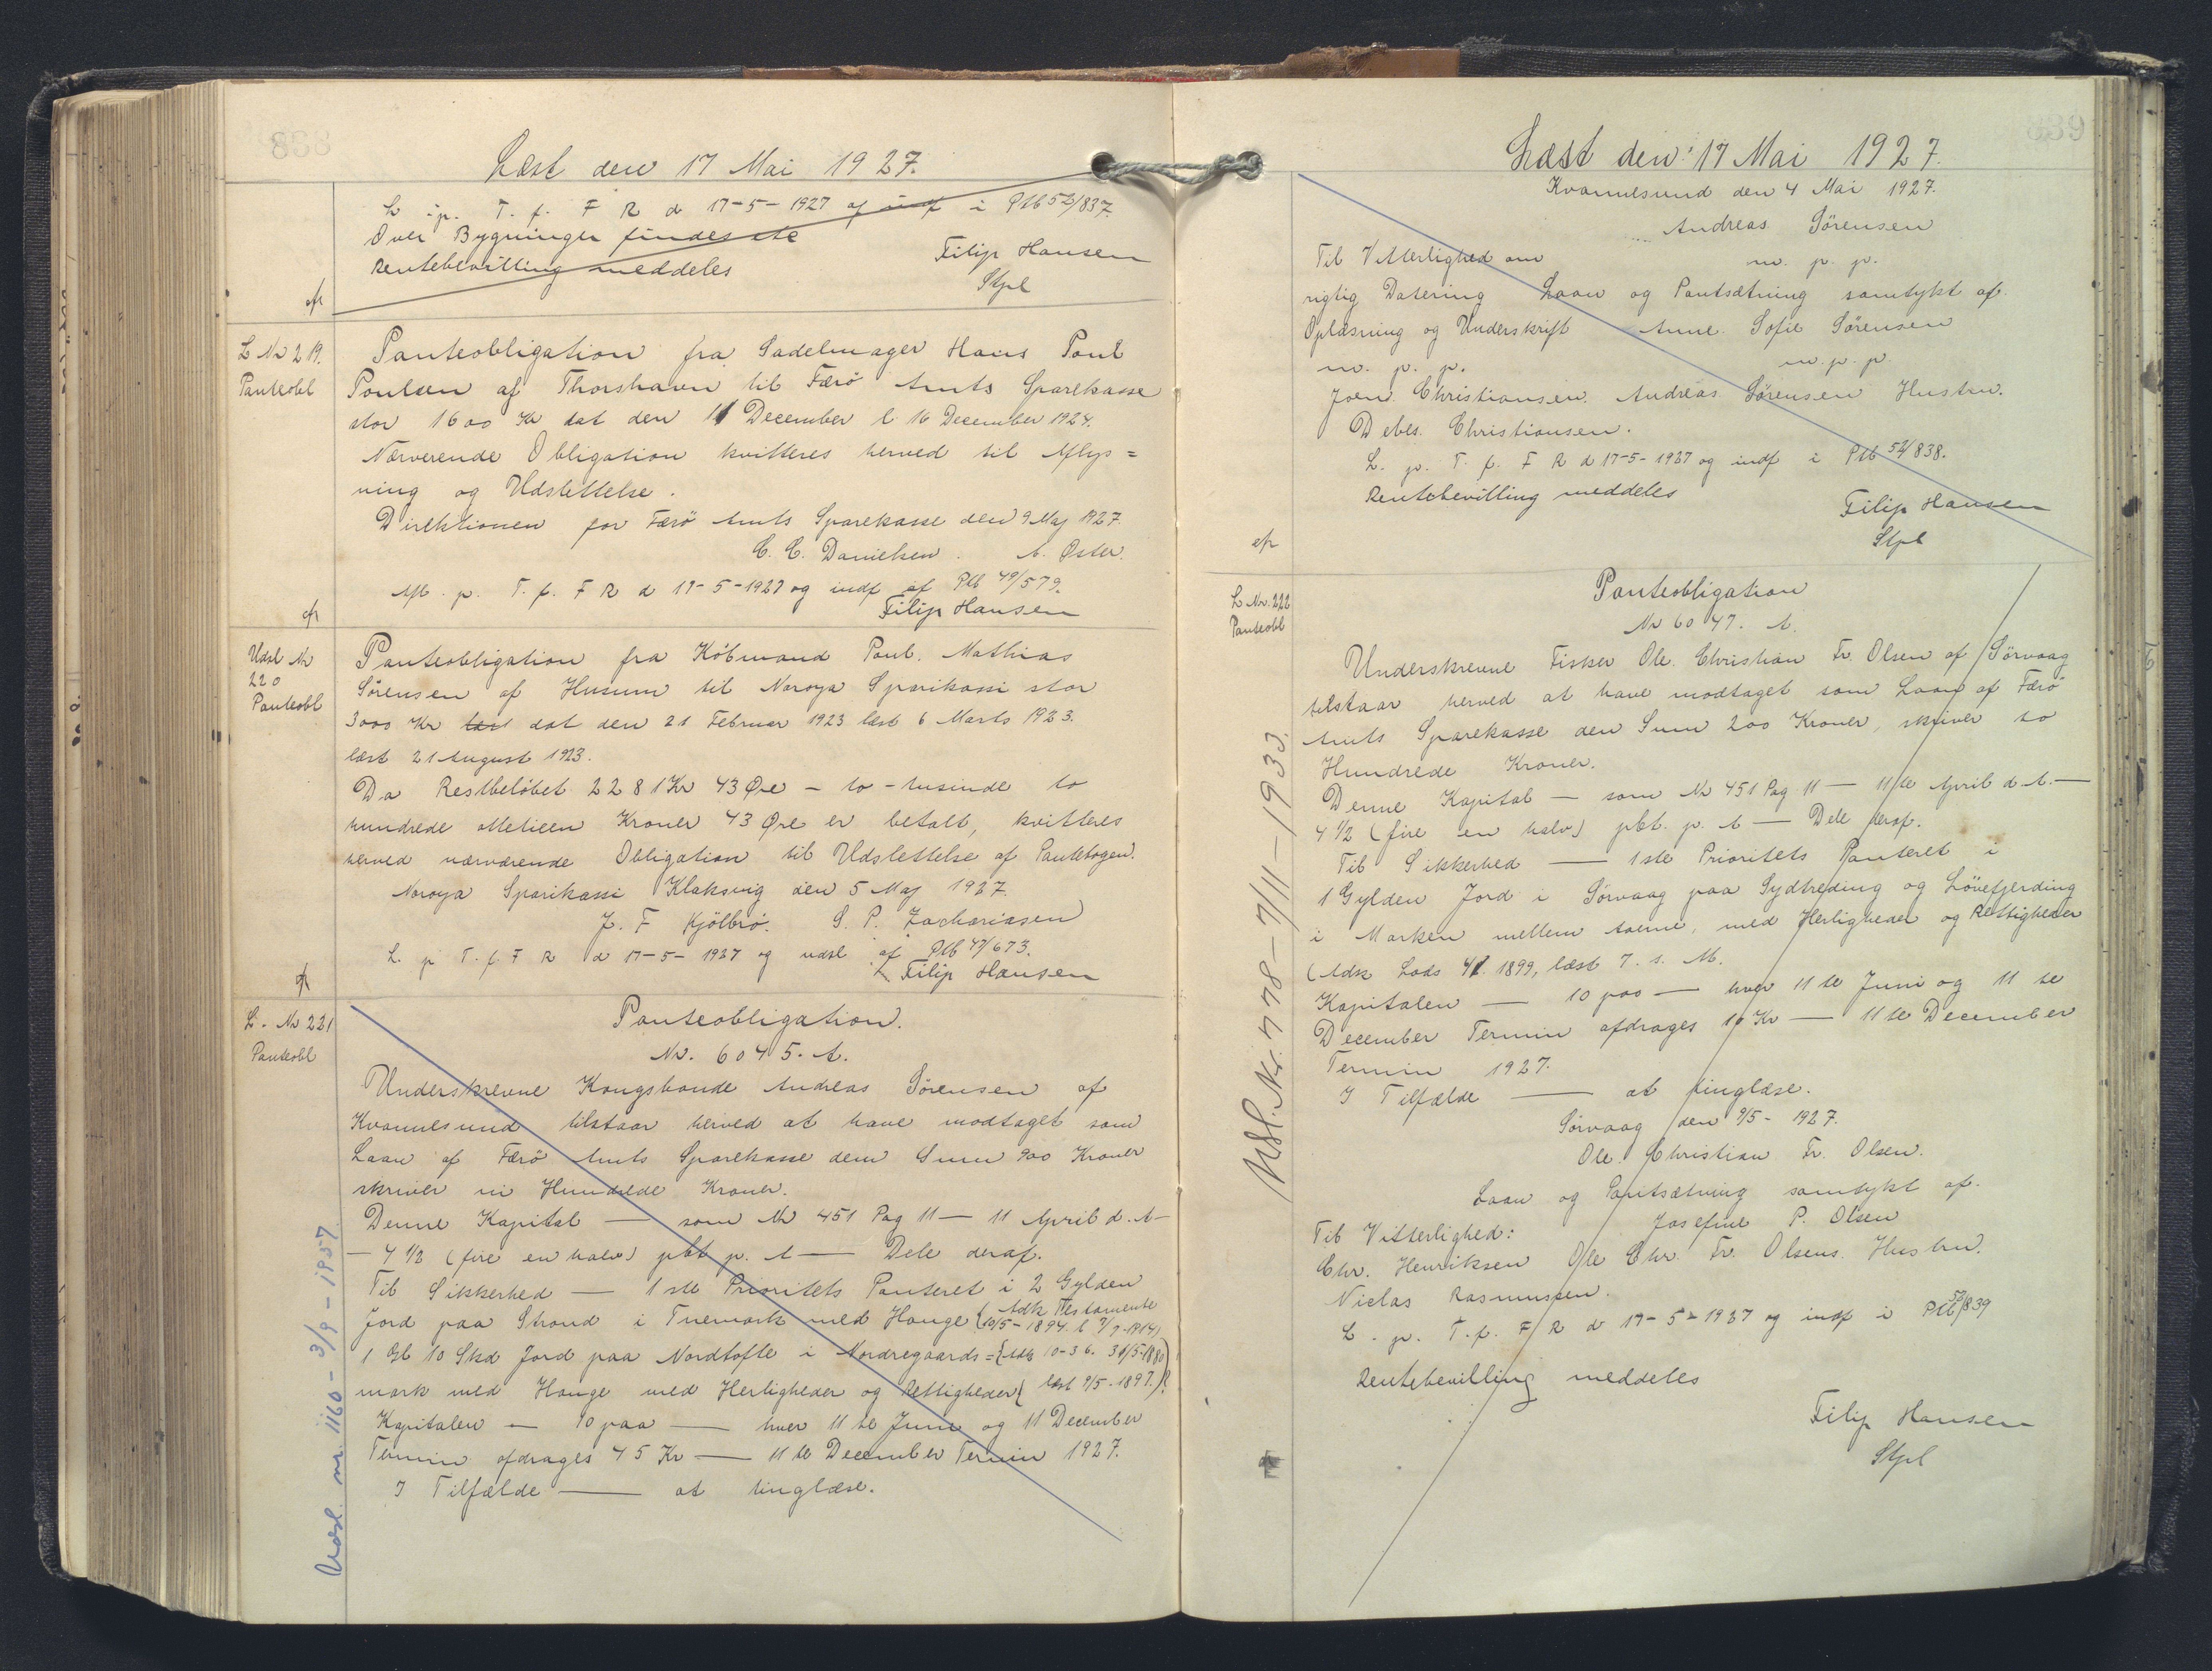 838
Læst den 17 Mai 1927.
L. p. T. f. F R d 17-5-1927 og indf i Ptb 52/837.
Over Bygninger findes ete
Rentebevilling meddeles
Filip Hansen
Stpl
L Nr 219.
Panteobl
Panteobligation fra Sadelmager Hans Poul
Poulsen af Thorshavn til Færø Amts Sparekasse
stor 1600 Kr dat den 11 December l. 16 December 1924.
Nærverende Obligation kvitteres herved til Aflys=
ning og Udslettelse.
Direktionen for Færø Amts Sparekasse den 9 Maj 1927
C. C. Danielsen. A. Öster.
Afl. p. T. f. F R d 17-5-1927 og indf af Ptb 49/579.
Filip Hansen
Udsl Nr
220
Panteobl
Panteobligation fra Købmand Poul. Mathias
Sørensen af Husum til Noroya Sparikassi stor
3000 Kr læst dat den 21 Februar 1923 læst 6 Marts 1923.
læst 21 August 1923.
Da Restbeløbet 2281 Kr 43 Øre - to-tusinde to
hundrede otteticen Kroner 43 Øre er betalt, kvitteres
herved nærværende Obligation til Udslettelse af Pantebogen.
Noroya Sparikassi Klaksvig den 5 Maj 1927.
J. F Kjölbro. S. P. Zachariasen
L. p T. f. F R d 17-5-1927 og udsl af Ptb 47/673.
Filip Hansen
L. Nr 221
Panteobl
Panteobligation.
Nr. 6045. A.
Underskrevne Kongsbonde Andreas Sørensen af
Kvannesund tilstaar herved at have modtaget som
Laan af Færø Amts Sparekasse den Sum 900 Kroner
skriver ni Hundrede Kroner.
Denne Kapital — som Nr 451 Pag 11 — 11 April d. A —
— 4 1/2 (fire en halv) pct p. A — Dele deraf.
Til Sikkerhed — 1ste Prioritets Panteret i 2 Gylden
Jord paa Strond i Tuemark med Hauge (Adk Testamente
10/5-1894. l 7/7-1914)
1 Gl 10 Skd Jord paa Nordtofte i Nordregaards= {Adk 10-36. 31/5-1880
mark med Hauge med Herligheder og Rettigheder ( læst 9/5-1897.)
Kapitalen — 10 paa — hver 11te Juni og 11 December
Termin afdrages 45 Kr — 11te December Termin 1927.
I Tilfælde — at tinglæse.
Udsl. nr. 1160 - 3/9 - 1957.
839
Læst den 17 Mai 1927.
Kvannesund den 4 Mai 1927.
Andreas Sørensen
Til Vitterlighed om m. p. p.
rigtig Datering Laan og Pantsætning samtykt af
Oplæsning og Underskrift Anne Sofie Sørensen
m. p. p. m. p. p.
Joen Christiansen. Andreas Sørensen Hustru.
Debes. Christiansen.
L. p. T. f. F R d 17-5-1927 og indf i Ptb 52/838.
Rentebevilling meddeles
Filip Hansen
Stpl
L Nr. 222
Panteobl
Panteobligation
Nr 6047. A.
Underskrevne Fisker Ole. Christian Fr. Olsen af Sørvaag
tilstaar herved at have modtaget som Laan af Færø
Amts Sparekasse den Sum 200 Kroner, skriver to
Hundrede Kroner.
Denne Kapital — som Nr 451 Pag. 11 — 11te April d. A. —
4 1/2 (fire en halv) pct. p. A — Dele deraf.
Til Sikkerhed — 1ste Prioritets Panteret i
1 Gylden Jord i Sørvaag paa Sydtreding og Løvefjerding
i Marken mellem Aaerne, med Herligheder og Rettigheder
(Adk Lods 1899, læst 7. s. M.
Kapitalen — 10 paa — hver 11te Juni og 11te
December Termin afdrages 10 Kr — 11te December
Termin 1927.
I Tilfælde — at tinglæse.
Sørvaag den 9/5-1927.
Ole. Christian Fr. Olsen.
Laan og Pantsætning samtykt af.
Til Vitterlighed: Josefine P. Olsen
Chr. Henriksen Ole Chr. Fr. Olsens. Hustru.
Niclas Rasmussen.
L. p. T. f. F R d 17-5-1927 og indf i Ptb 52/839
Rentebevilling meddeles
Filip Hansen
Stpl
Udsl. Nr. 778 - 7/11 - 1933.